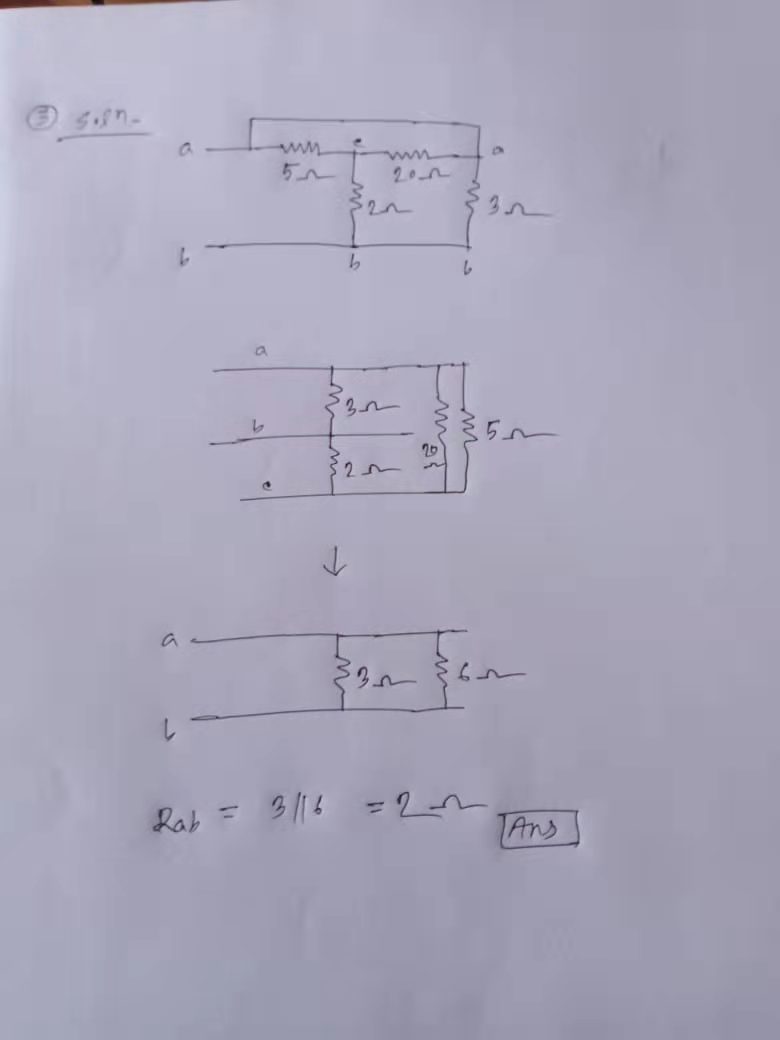 ③ Soln.
a c a
5Ω 20Ω
2Ω 3Ω
b b b
a
3Ω
b 5Ω
2Ω 20Ω
c
↓
a
3Ω 6Ω
b
Rab = 3||6 = 2Ω Ans